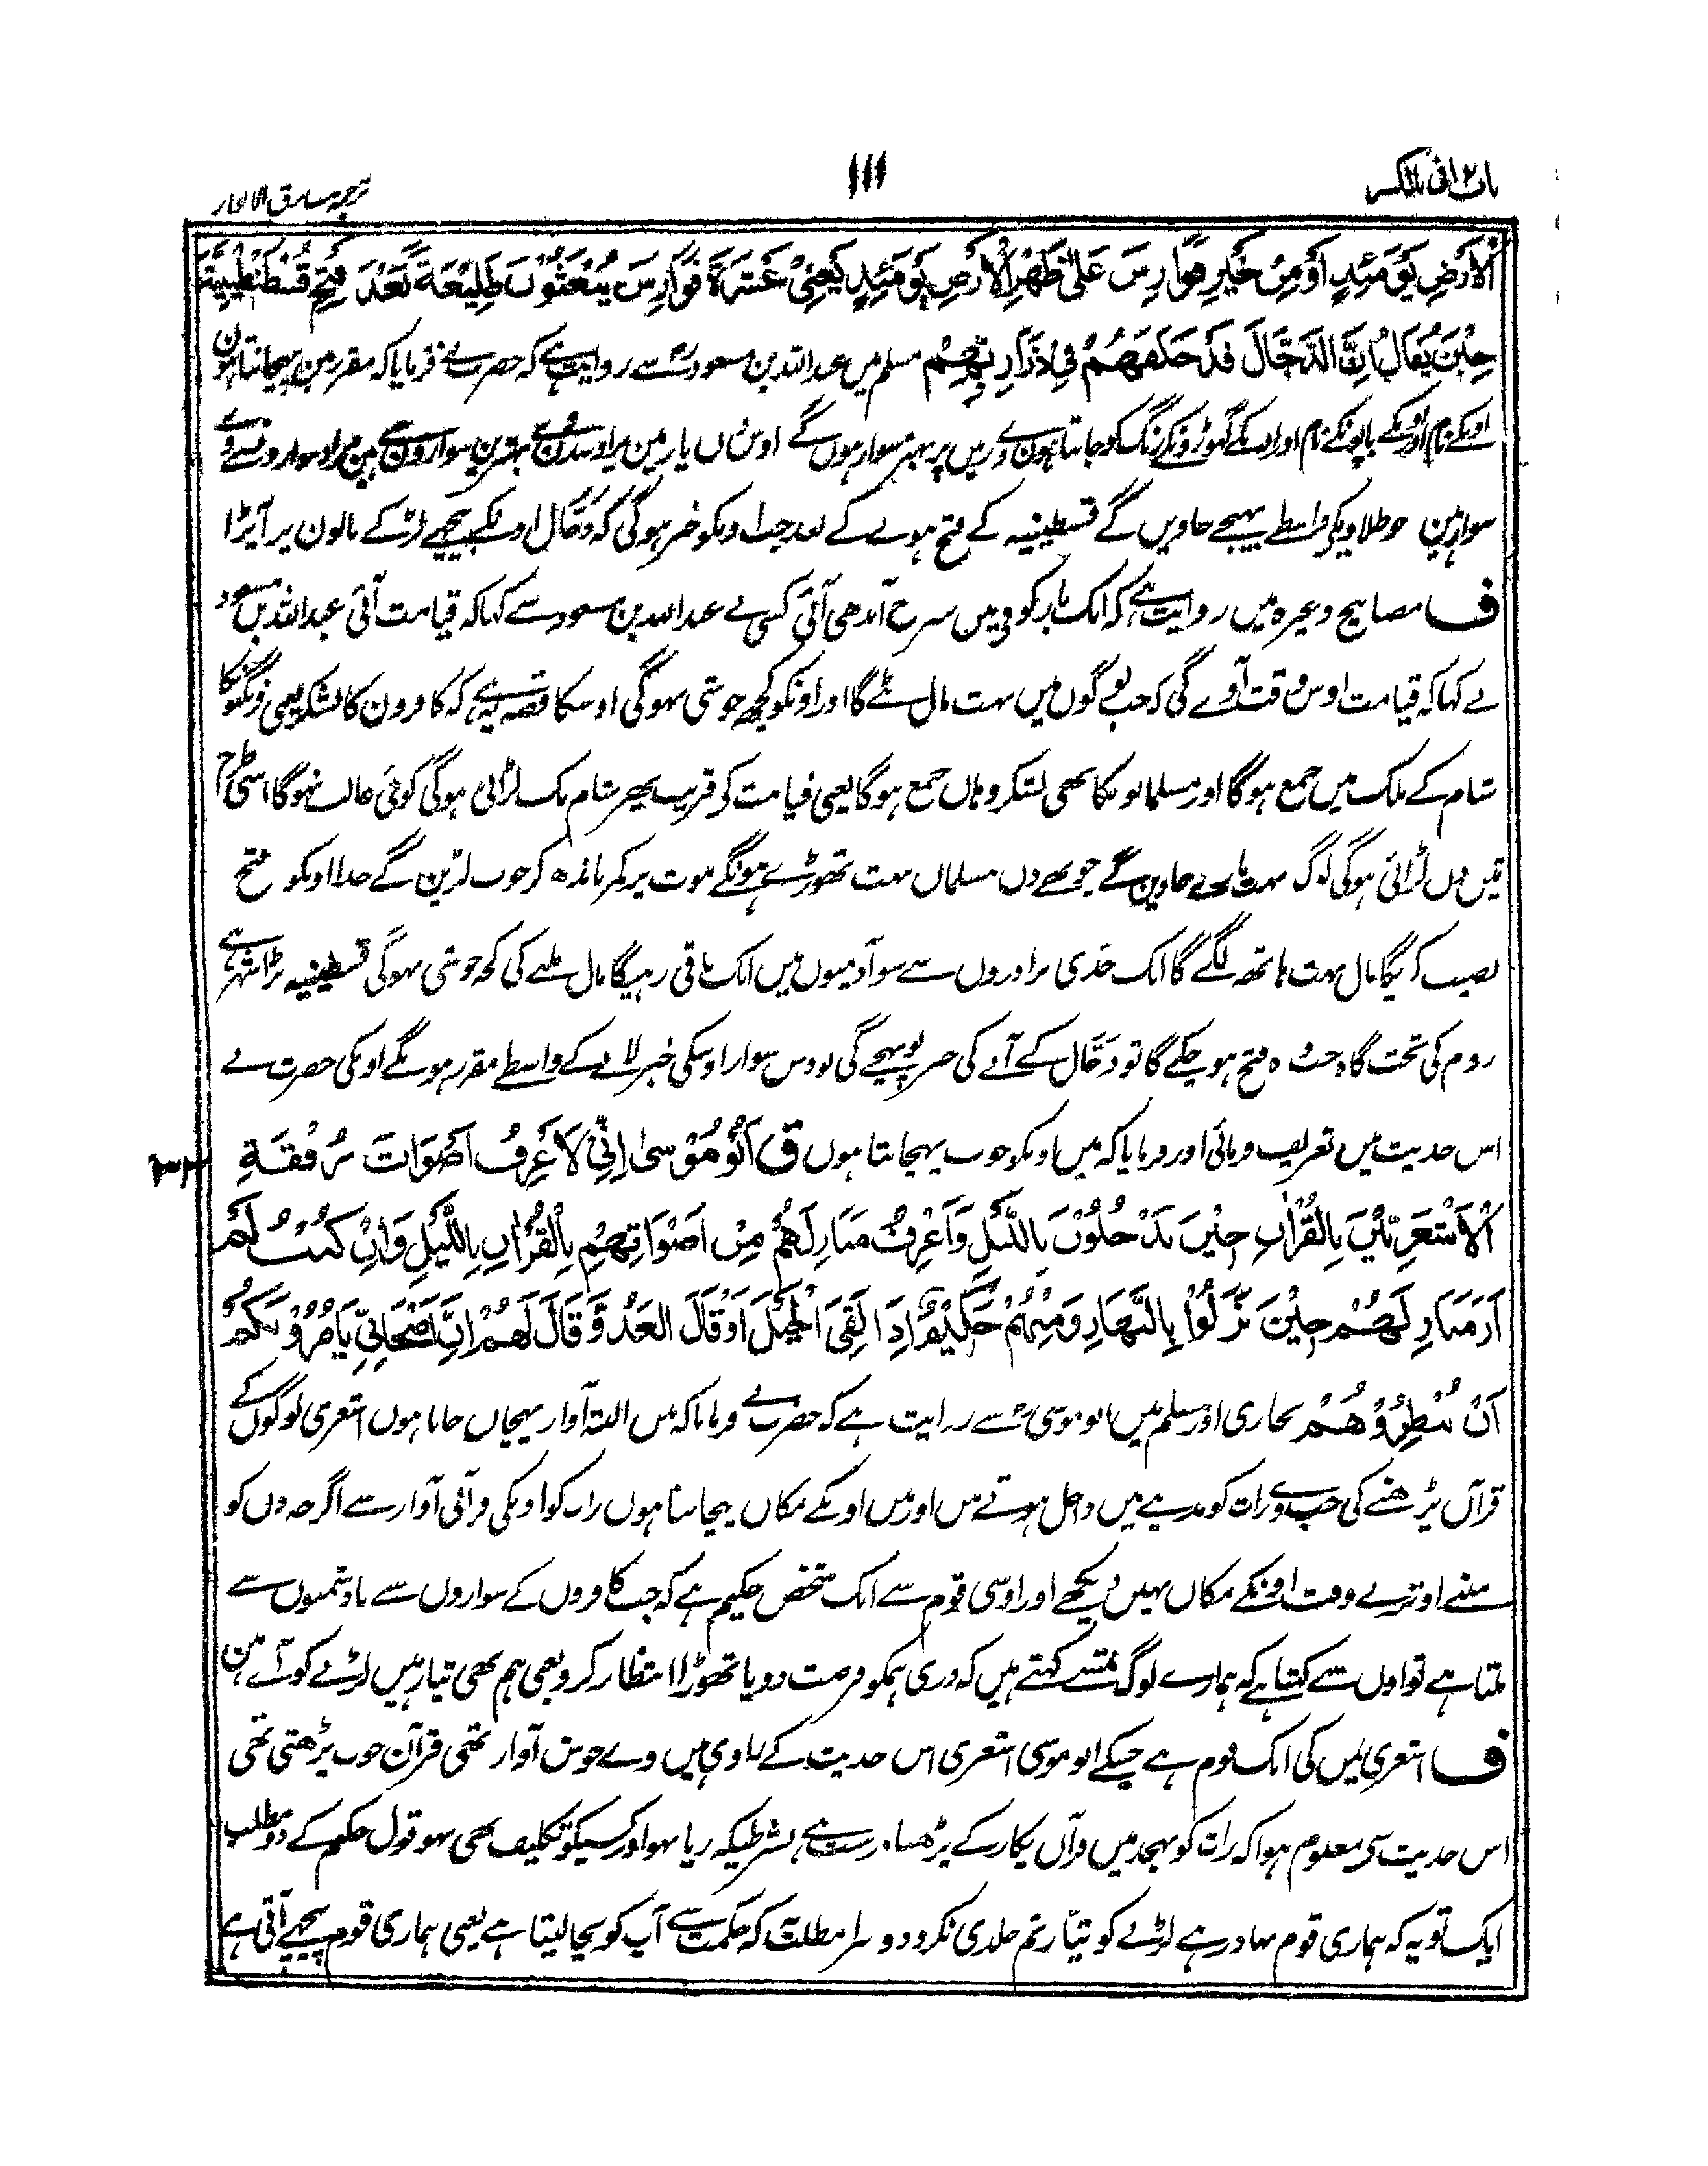 باب ۲ انی بالکسر
۱۱۱
ترجمہ مشارق الانوار
اَلْاَرْضِ يَوْمَئِذٍ اَوْ مِنْ خَيْرِ فَوَارِسَ عَلٰى ظَهْرِ الْاَرْضِ يَوْمَئِذٍ يَعْنِيْ عَشَرَةَ فَوَارِسَ يُبْعَثُوْنَ طَلِيْعَةً بَعْدَ فَتْحِ قُسْطَنْطِيْنِيَّةَ
حِيْنَ يُقَالُ اِنَّ الدَّجَّالَ قَدْ خَلَفَهُمْ فِيْ ذَرَارِيْهِمْ مسلم میں عبد اللہ بن مسعودؓ سے روایت ہے کہ حضرت نے فرمایا کہ مقرر مین پہچانتا ہون
اونکے نام اور اونکے باپونکے نام اور اونکے گھوڑونکے رنگ کو جانتا ہون وے زمیں پر بہتر سوار ہوں گے اوس دں یا زمین پر اوسدن کے بہترین سواروں سے ہین مراد سوارونسے وے
سوار ہین جو طلاویکے واسطے بھیجے جاویں گے قسطنطینیہ کے فتح ہونے کے بعد جب اونکو خبر ہوگی کہ دَجّال اونکے پیچھے لڑکے بالون پر آپڑا
ف مصابیح وغیرہ میں روایت ہے کہ ایک بار کوفے میں سرخ آندھی آئی کسی نے عبد اللہ بن مسعود سے کہا کہ قیامت آئی عبد اللہ بن مسعود
نے کہا کہ قیامت اوس وقت آوے گی کہ جب لوگوں میں بہت مال بٹے گا اور اونکو کچھ خوشی نہوگی اوسکا قصہ یہ ہے کہ کافرون کا لشکر یعنی فرنگیونکا
شام کے ملک میں جمع ہوگا اور مسلمانونکا بھی لشکر وہاں جمع ہوگا یعنی قیامت کے قریب پھر شام تک لڑائی ہوگی کوئی غالب نہوگا اسی طرح
تیں دں لڑائی ہوگی لوگ بہت مارے جاوین گے چوتھے دں مسلماں بہت تھوڑے ہونگے موت پر کمر باندھ کر خوب لڑین گے خدا اونکو فتح
نصیب کریگا مال بہت ہاتھ لگے گا ایک جدی برادروں سے سو آدمیوں میں ایک باقی رہیگا مال ملنے کی کچھ خوشی نہوگی قسطنطینیہ بڑا شہر ہے
روم کی تخت گاہ جب وہ فتح ہو چکے گا تو دَجّال کے آنے کی خبر پہونچے گی تو دس سوار اوسکی خبر لانے کے واسطے مقرر ہونگے اونکی حضرت نے
اس حدیث میں تعریف فرمائی اور فرمایا کہ میں اونکو خوب پہچانتا ہوں ق اَبُوْ مُوْسٰى اِنِّيْ لَاَعْرِفُ اَصْوَاتَ رُفْقَةِ
اَلْاَشْعَرِيِّيْنَ بِالْقُرْاٰنِ حِيْنَ يَدْخُلُوْنَ بِاللَّيْلِ وَاَعْرِفُ مَنَازِلَهُمْ مِنْ اَصْوَاتِهِمْ بِالْقُرْاٰنِ بِاللَّيْلِ وَاِنْ كُنْتُ لَمْ
اَرَ مَنَازِلَهُمْ حِيْنَ نَزَلُوْا بِالنَّهَارِ وَمِنْهُمْ حَكِيْمٌ اِذَا لَقِيَ الْخَيْلَ اَوْ قَالَ الْعَدُوَّ قَالَ لَهُمْ اِنَّ اَصْحَابِيْ يَاْمُرُوْنَكُمْ
اَنْ تَنْظُرُوْهُمْ بخاری اور مسلم میں ابو موسیؓ سے روایت ہے کہ حضرت نے فرمایا کہ میں البتہ آواز پہچاں جاتا ہوں اشعری لوگوں کے
قرآن پڑھنے کی جب وے رات کو مدینے میں داخل ہوتے ہیں اور میں اونکے مکاں پہچانتا ہوں رات کو اونکی قرآنی آواز سے اگرچہ دں کو
مینے اوترتے وقت اونکے مکاں نہیں دیکھے اور اوسی قوم سے ایک شخص حکیم ہے کہ جب کافروں کے سواروں سے یا دشمنوں سے
ملتا ہے تو اوں سے کہتا ہے کہ ہمارے لوگ تمسے کہتے ہیں کہ ذری ہمکو فرصت دو یا تھوڑا انتظار کرو یعنی ہم بھی تیار ہیں لڑنے کو آتے ہین
ف اشعری یمں کی ایک قوم ہے جسکے ابو موسی اشعری اس حدیث کے راوی ہیں وے خوش آواز تھی قرآن خوب پڑھتی تھی
اس حدیث سی معلوم ہوا کہ رات کو تہجد میں قرآں پکار کے پڑھنا درست ہے بشرطیکہ ریا نہو اور کسیکو تکلیف بھی نہو قول حکیم کے دو مطلب
ایک تو یہ کہ ہماری قوم بہادر ہے لڑنے کو تیّار تم جلدی نکرو دوسرا مطلب یہ کہ حکمت سے آپ کو بچا لیتا ہے یعنی ہماری قوم پیچھے آتی ہے